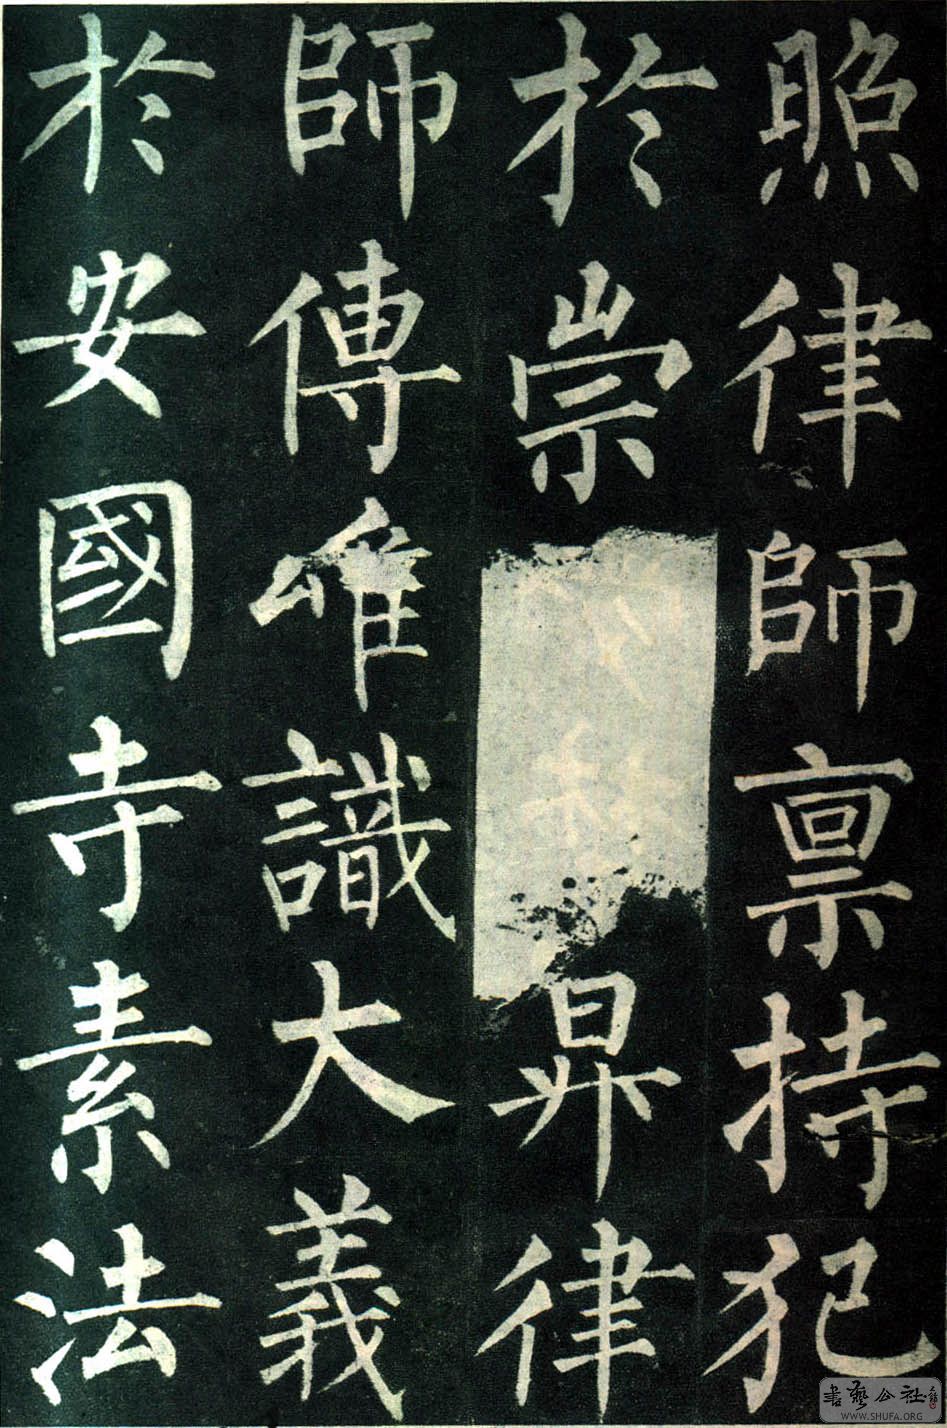 照律師禀持犯
於崇昇律
師傳唯識大義
於安國寺素法
書藝公社
WWW.SHUFA.ORG